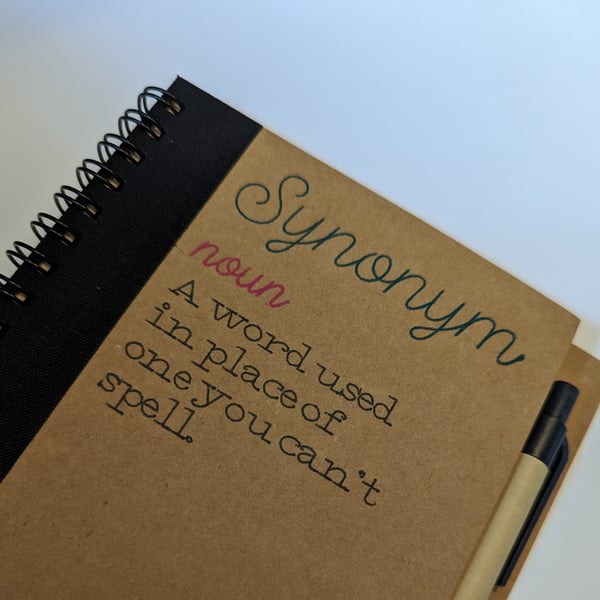 Synonym
noun
A word used
in place of
one you can't
spell.